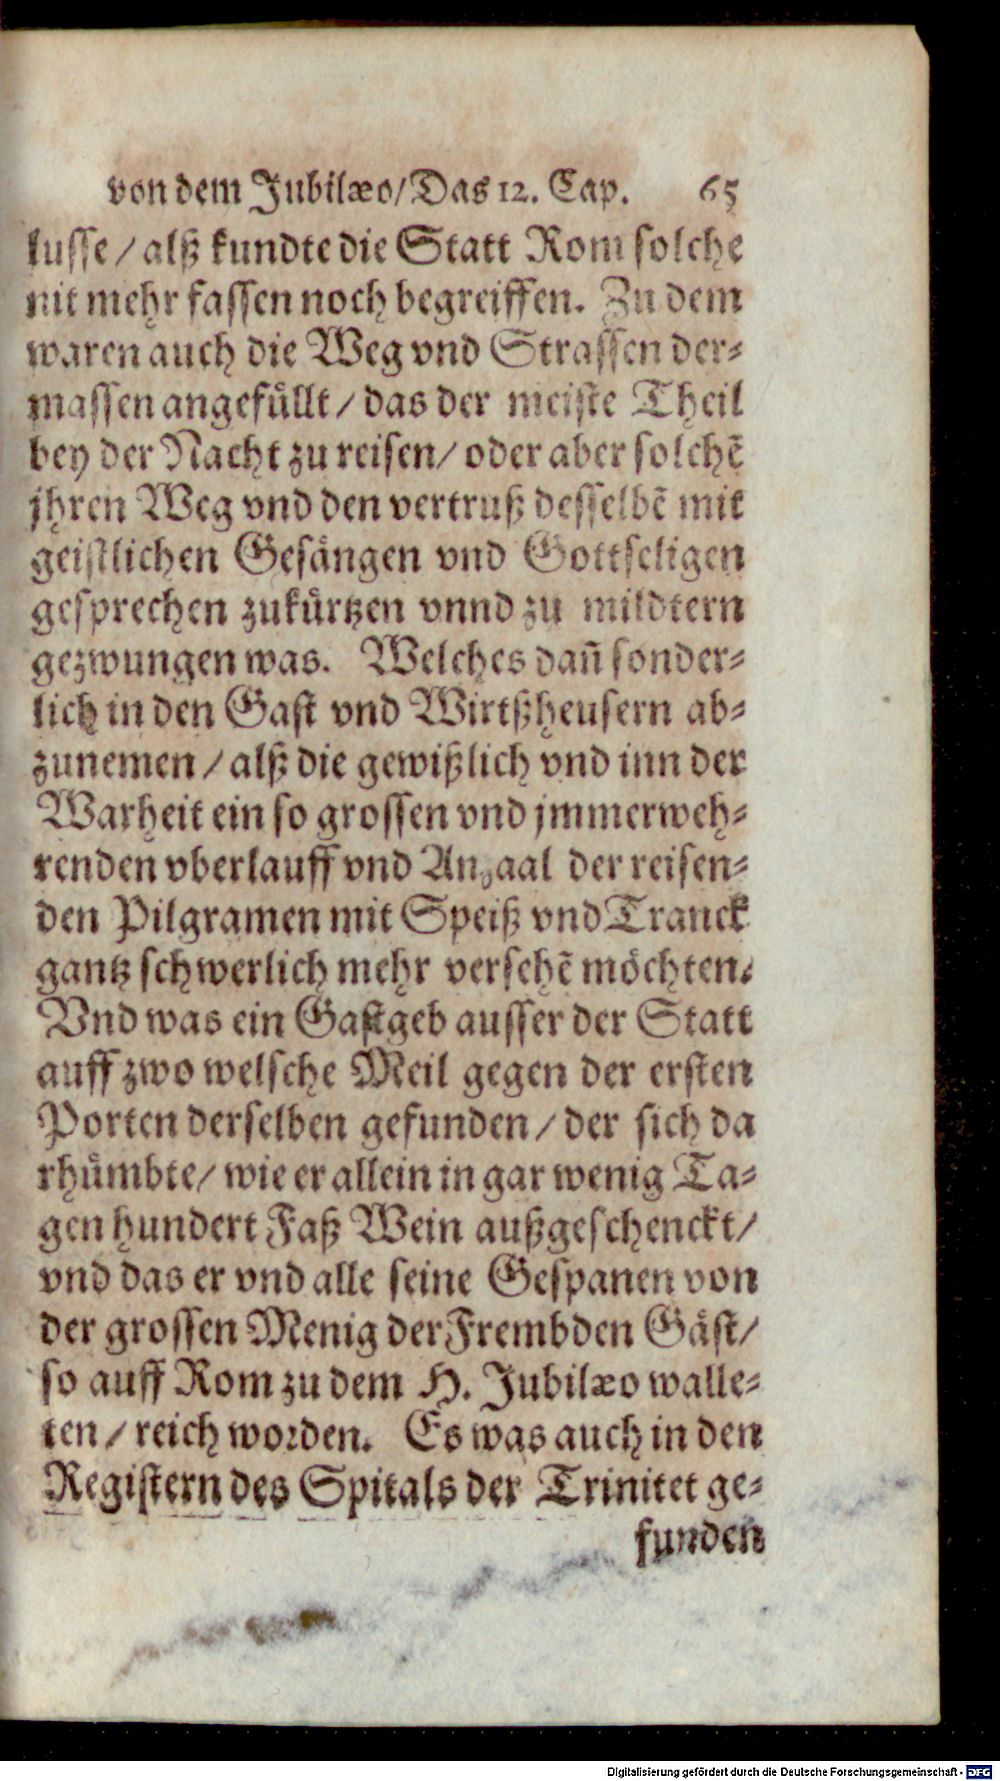 von dem Jubilæo/Das 12. Cap. 65
lusse / alß kundte die Statt Rom solche
nit mehr fassen noch begreiffen. Zu dem
waren auch die Weg vnd Strassen der-
massen angefüllt / das der meiste Theil
bey der Nacht zu reisen/ oder aber solchẽ
jhren Weg vnd den vertruß desselbẽ mit
geistlichen Gesängen vnd Gottseligen
gesprechen zukürtzen vnnd zu mildtern
gezwungen was. Welches dañ sonder-
lich in den Gast vnd Wirtßheusern ab-
zunemen / alß die gewißlich vnd inn der
Warheit ein so grossen vnd jmmerweh-
renden vberlauff vnd Anzaal der reisen-
den Pilgramen mit Speiß vnd Tranck
gantz schwerlich mehr versehẽ möchten.
Vnd was ein Gastgeb ausser der Statt
auff zwo welsche Meil gegen der ersten
Porten derselben gefunden / der sich da
rhümbte/ wie er allein in gar wenig Ta-
gen hundert Faß Wein außgeschenckt/
vnd das er vnd alle seine Gespanen von
der grossen Menig der Frembden Gäst/
so auff Rom zu dem H. Jubilæo walle-
ten / reich worden. Es was auch in den
Registern des Spitals der Trinitet ge-
funden
Digitalisierung gefördert durch die Deutsche Forschungsgemeinschaft - DFG